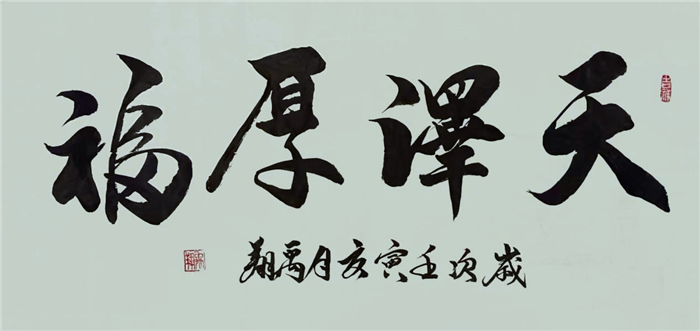 天澤厚福
歲次壬寅亥月禹翔